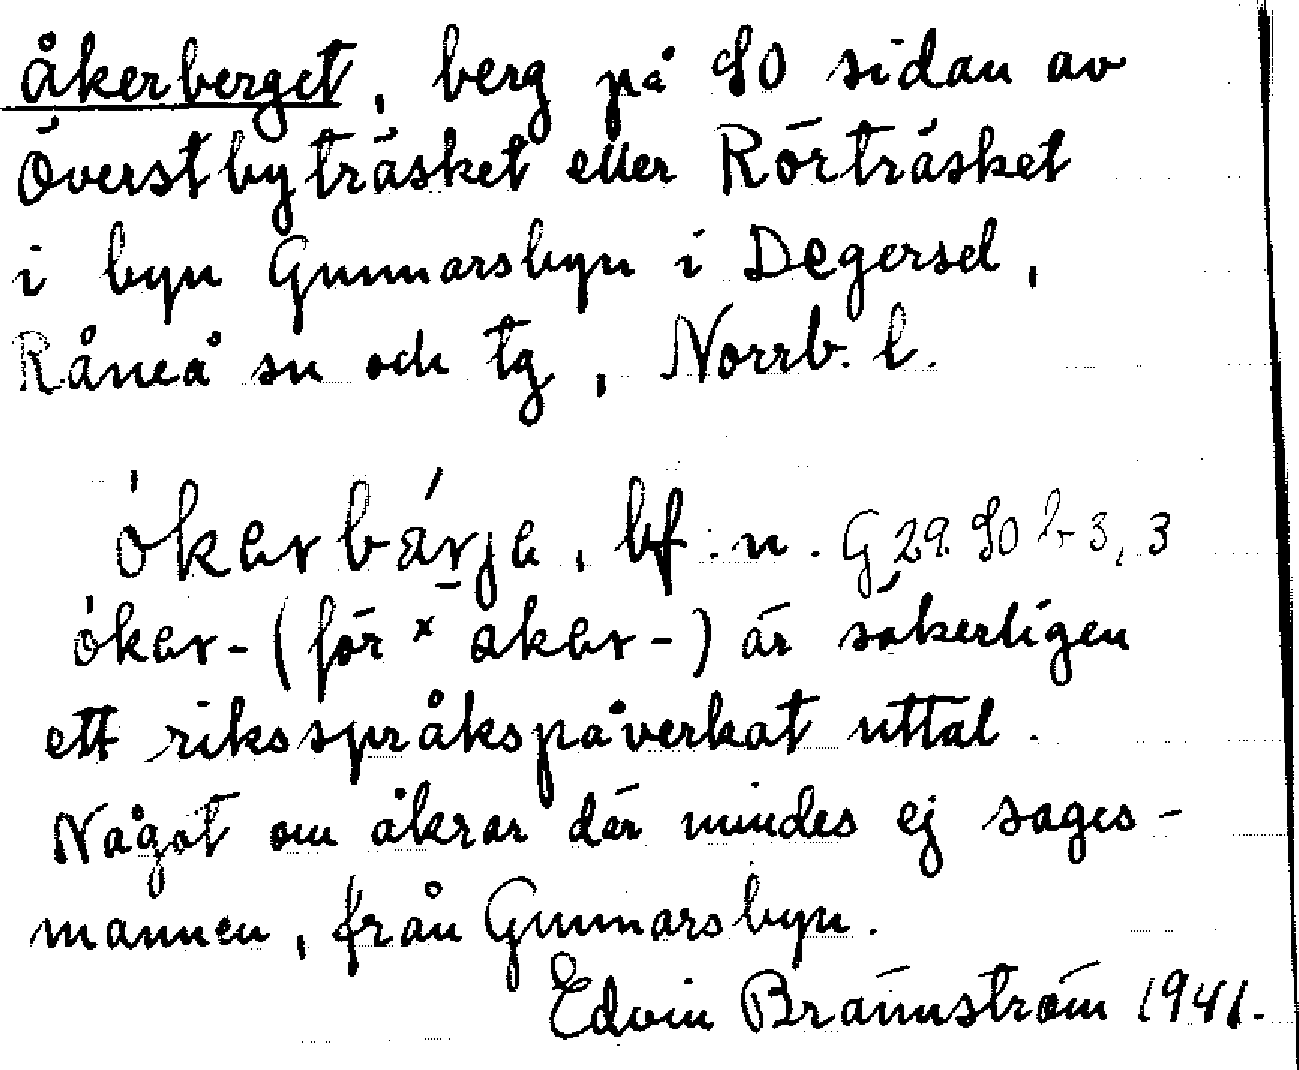 åkerberget, berg på SO sidan av
Överstbyträsket eller Rörträsket
i byn Gunnarsbyn i Degersel,
Råneå sn och tg, Norrb. l.
ò̀kərbárjə, bf. n. G 29. SO b 3, 3
ókər- (för ˣ akər-) är säkerligen
ett riksspråkspåverkat uttal.
Något om åkrar där mindes ej sages-
mannen, från Gunnarsbyn.
Edvin Brännström 1941.